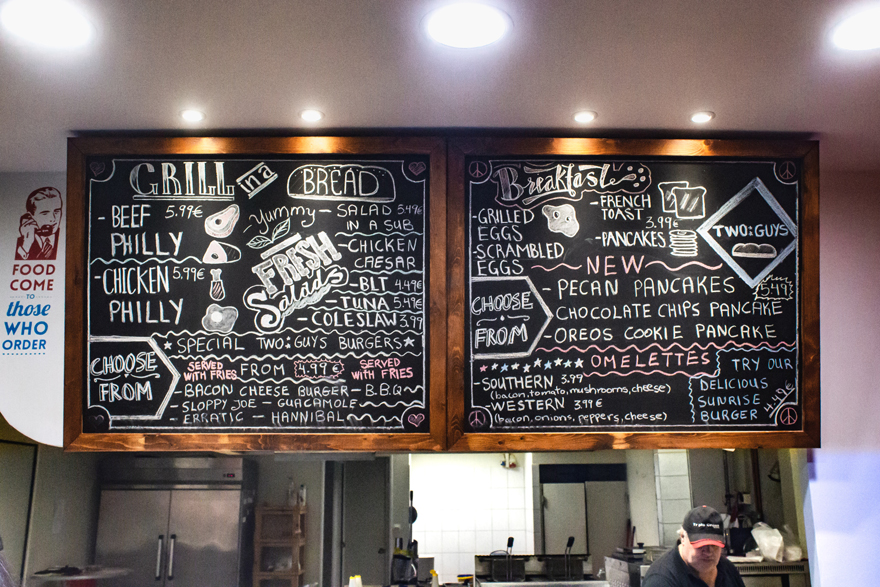 FOOD
COME
to
those
WHO
ORDER
GRILL in a BREAD
-BEEF 5.99€
PHILLY
-CHICKEN 5.99€
PHILLY
-Yummy-
FRESH
Salads
SALAD 5.49€
IN A SUB
-CHICKEN
CAESAR
-BLT 4.49€
-TUNA 5.49€
-COLESLAW 3.99
★SPECIAL TWO:GUYS BURGERS★
CHOOSE
FROM
SERVED
WITH FRIES
FROM 4.99€
SERVED
WITH FRIES
-BACON CHEESE BURGER - B.B.Q
-SLOPPY JOE - GUACAMOLE
-ERRATIC - HANNIBAL
Breakfast
-GRILLED
EGGS
SCRAMBLED
EGGS
-FRENCH
TOAST
3.99€
-PANCAKES
TWO:GUYS
NEW
CHOOSE
FROM
-PECAN PANCAKES
5.49€
-CHOCOLATE CHIPS PANCAKE
-OREOS COOKIE PANCAKE
OMELETTES
-SOUTHERN 3.99
(bacon,tomato,mushrooms,cheese)
-WESTERN 3.99€
(bacon,onions,peppers,cheese)
TRY OUR
DELICIOUS
SUNRISE
BURGER 4.49€